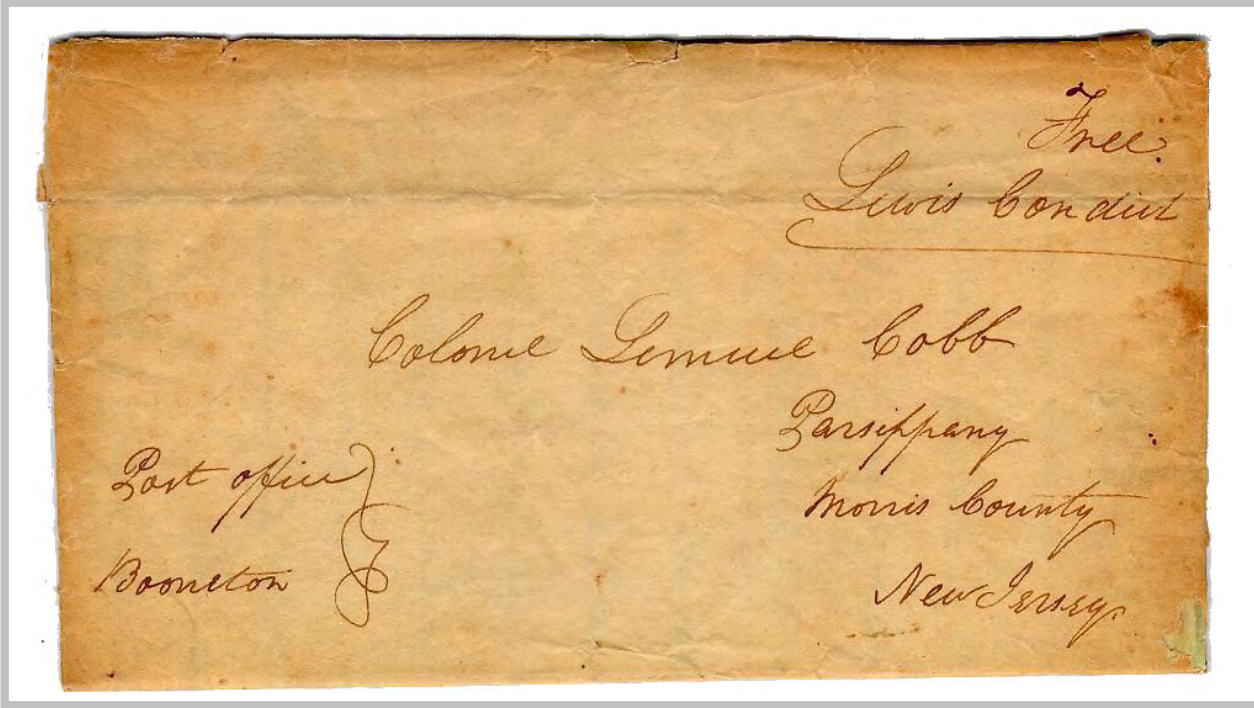 Free.
Lewis Condict
Colonel Lemuel Cobb
Parsippany
Morris County
New Jersey.
Post office
Booneton